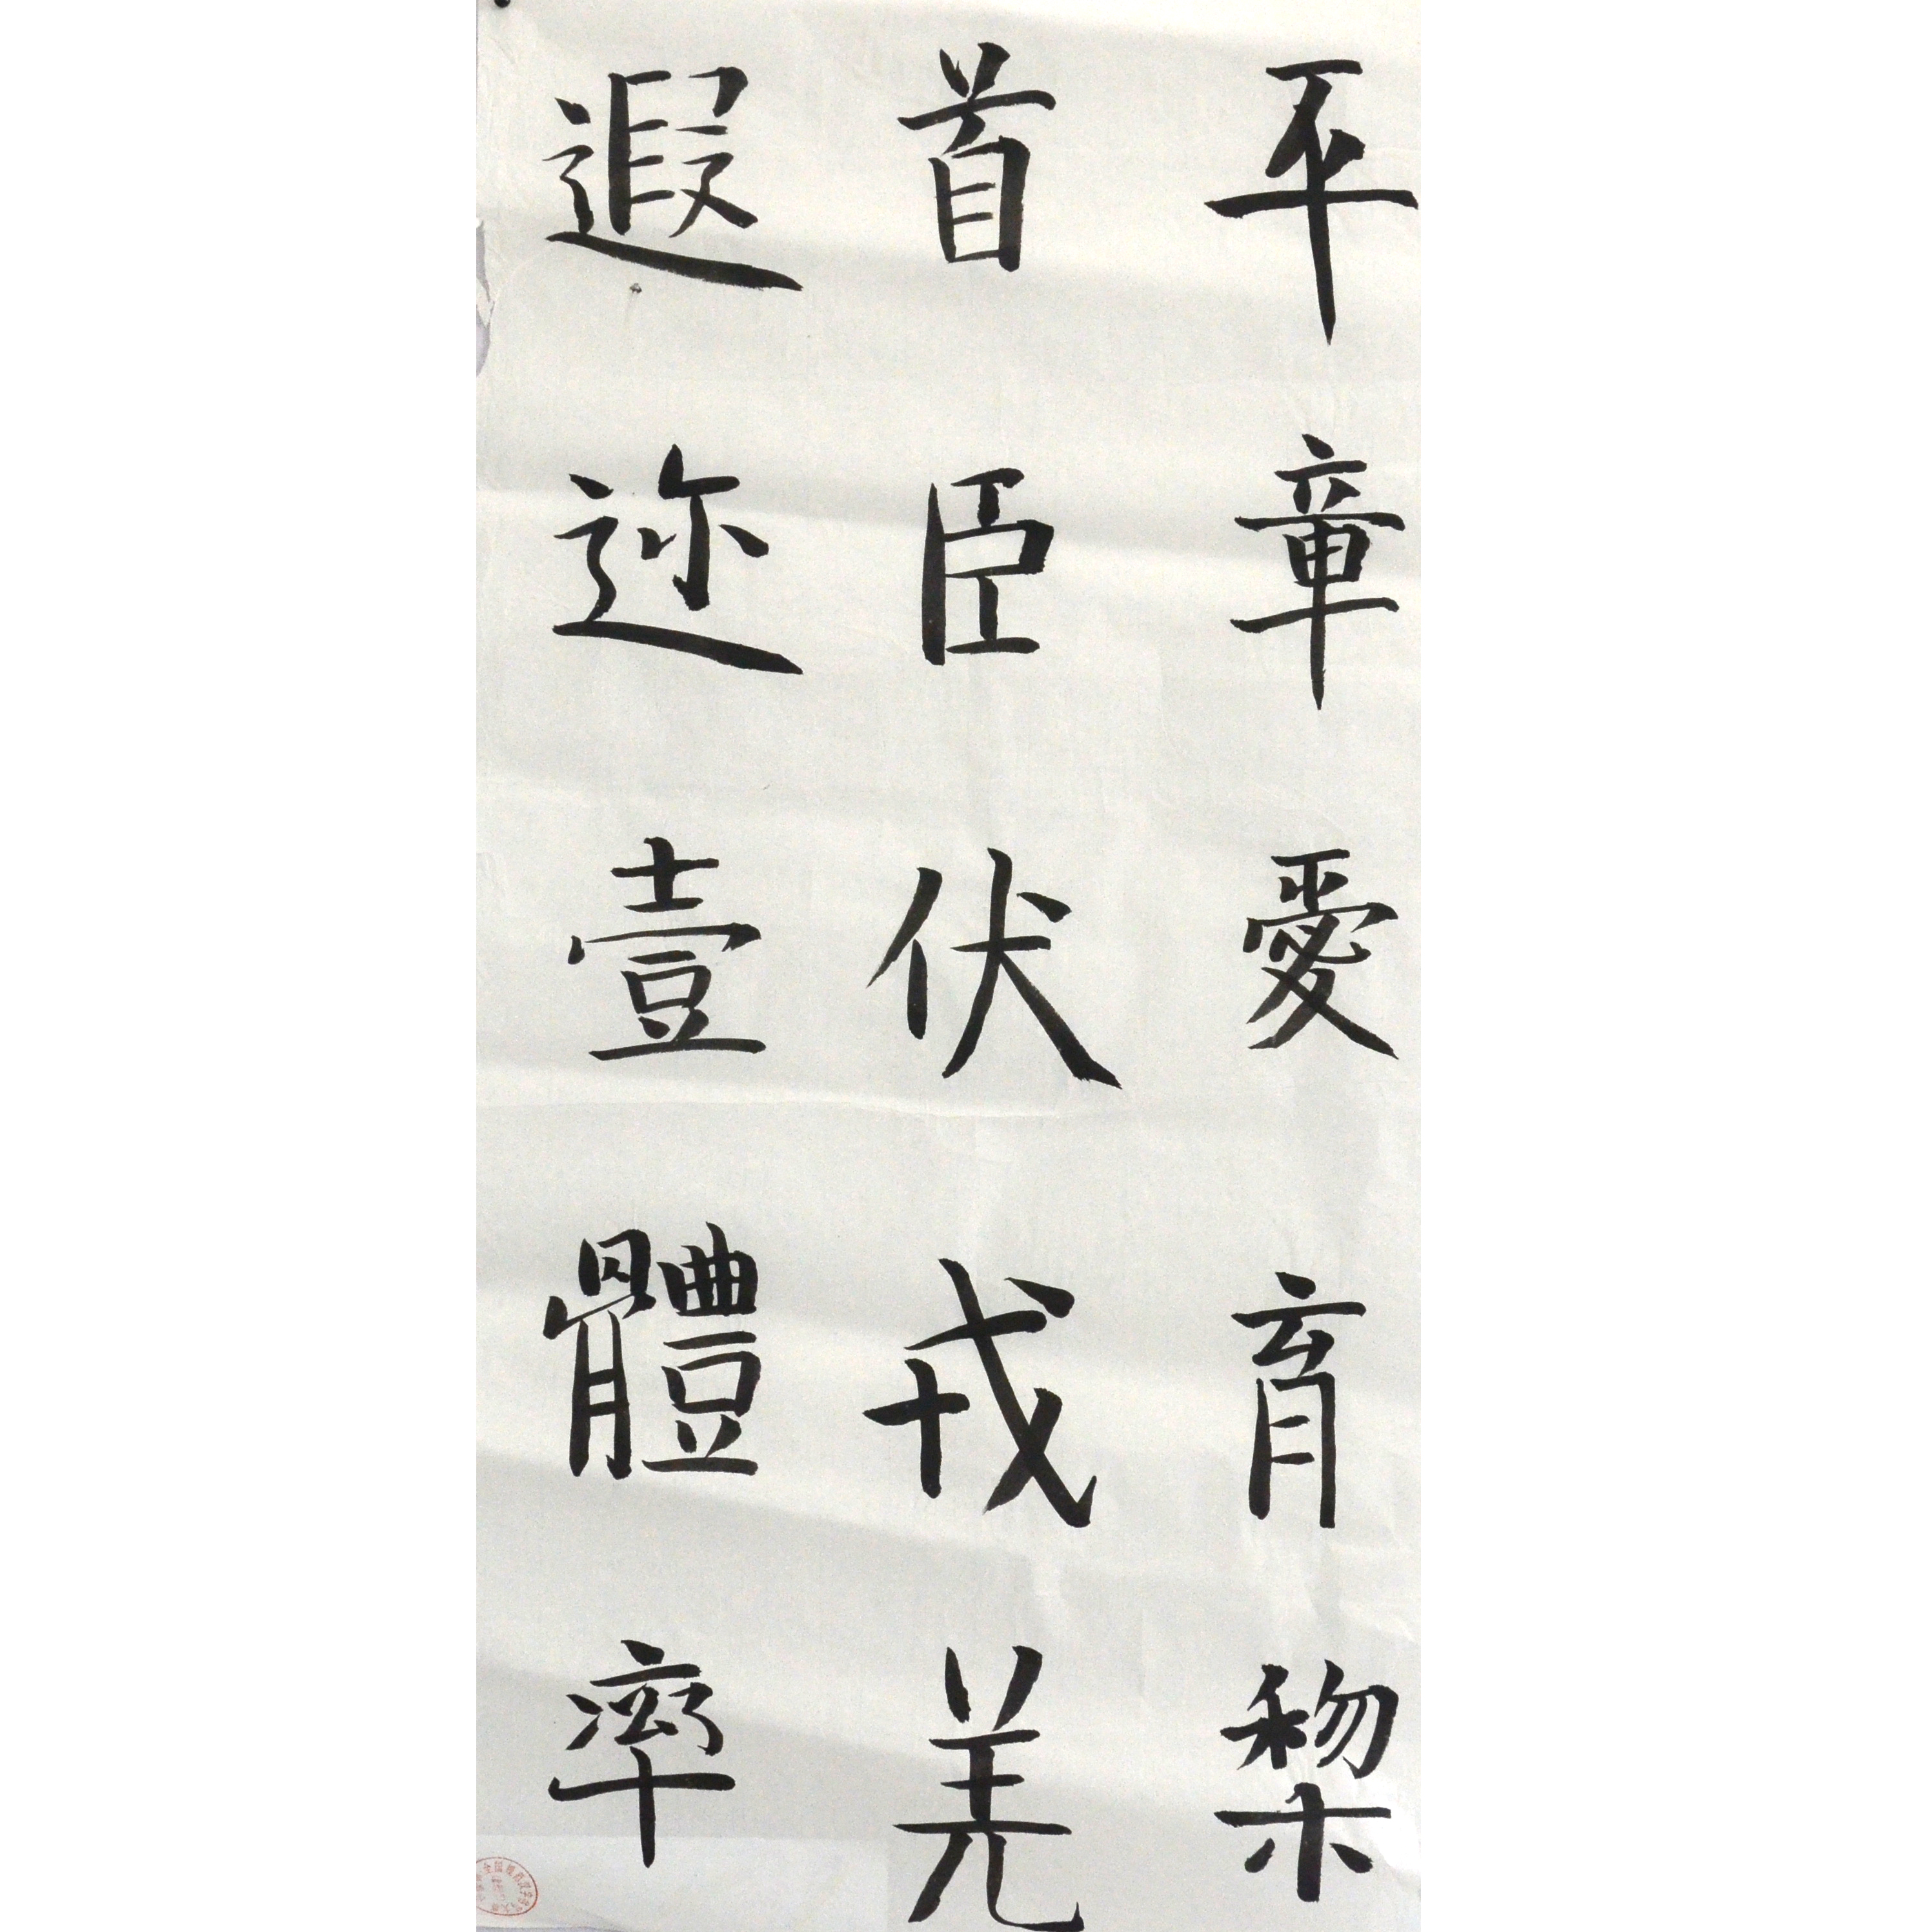 平章愛育黎
首臣伏戎羌
遐迩壹體率